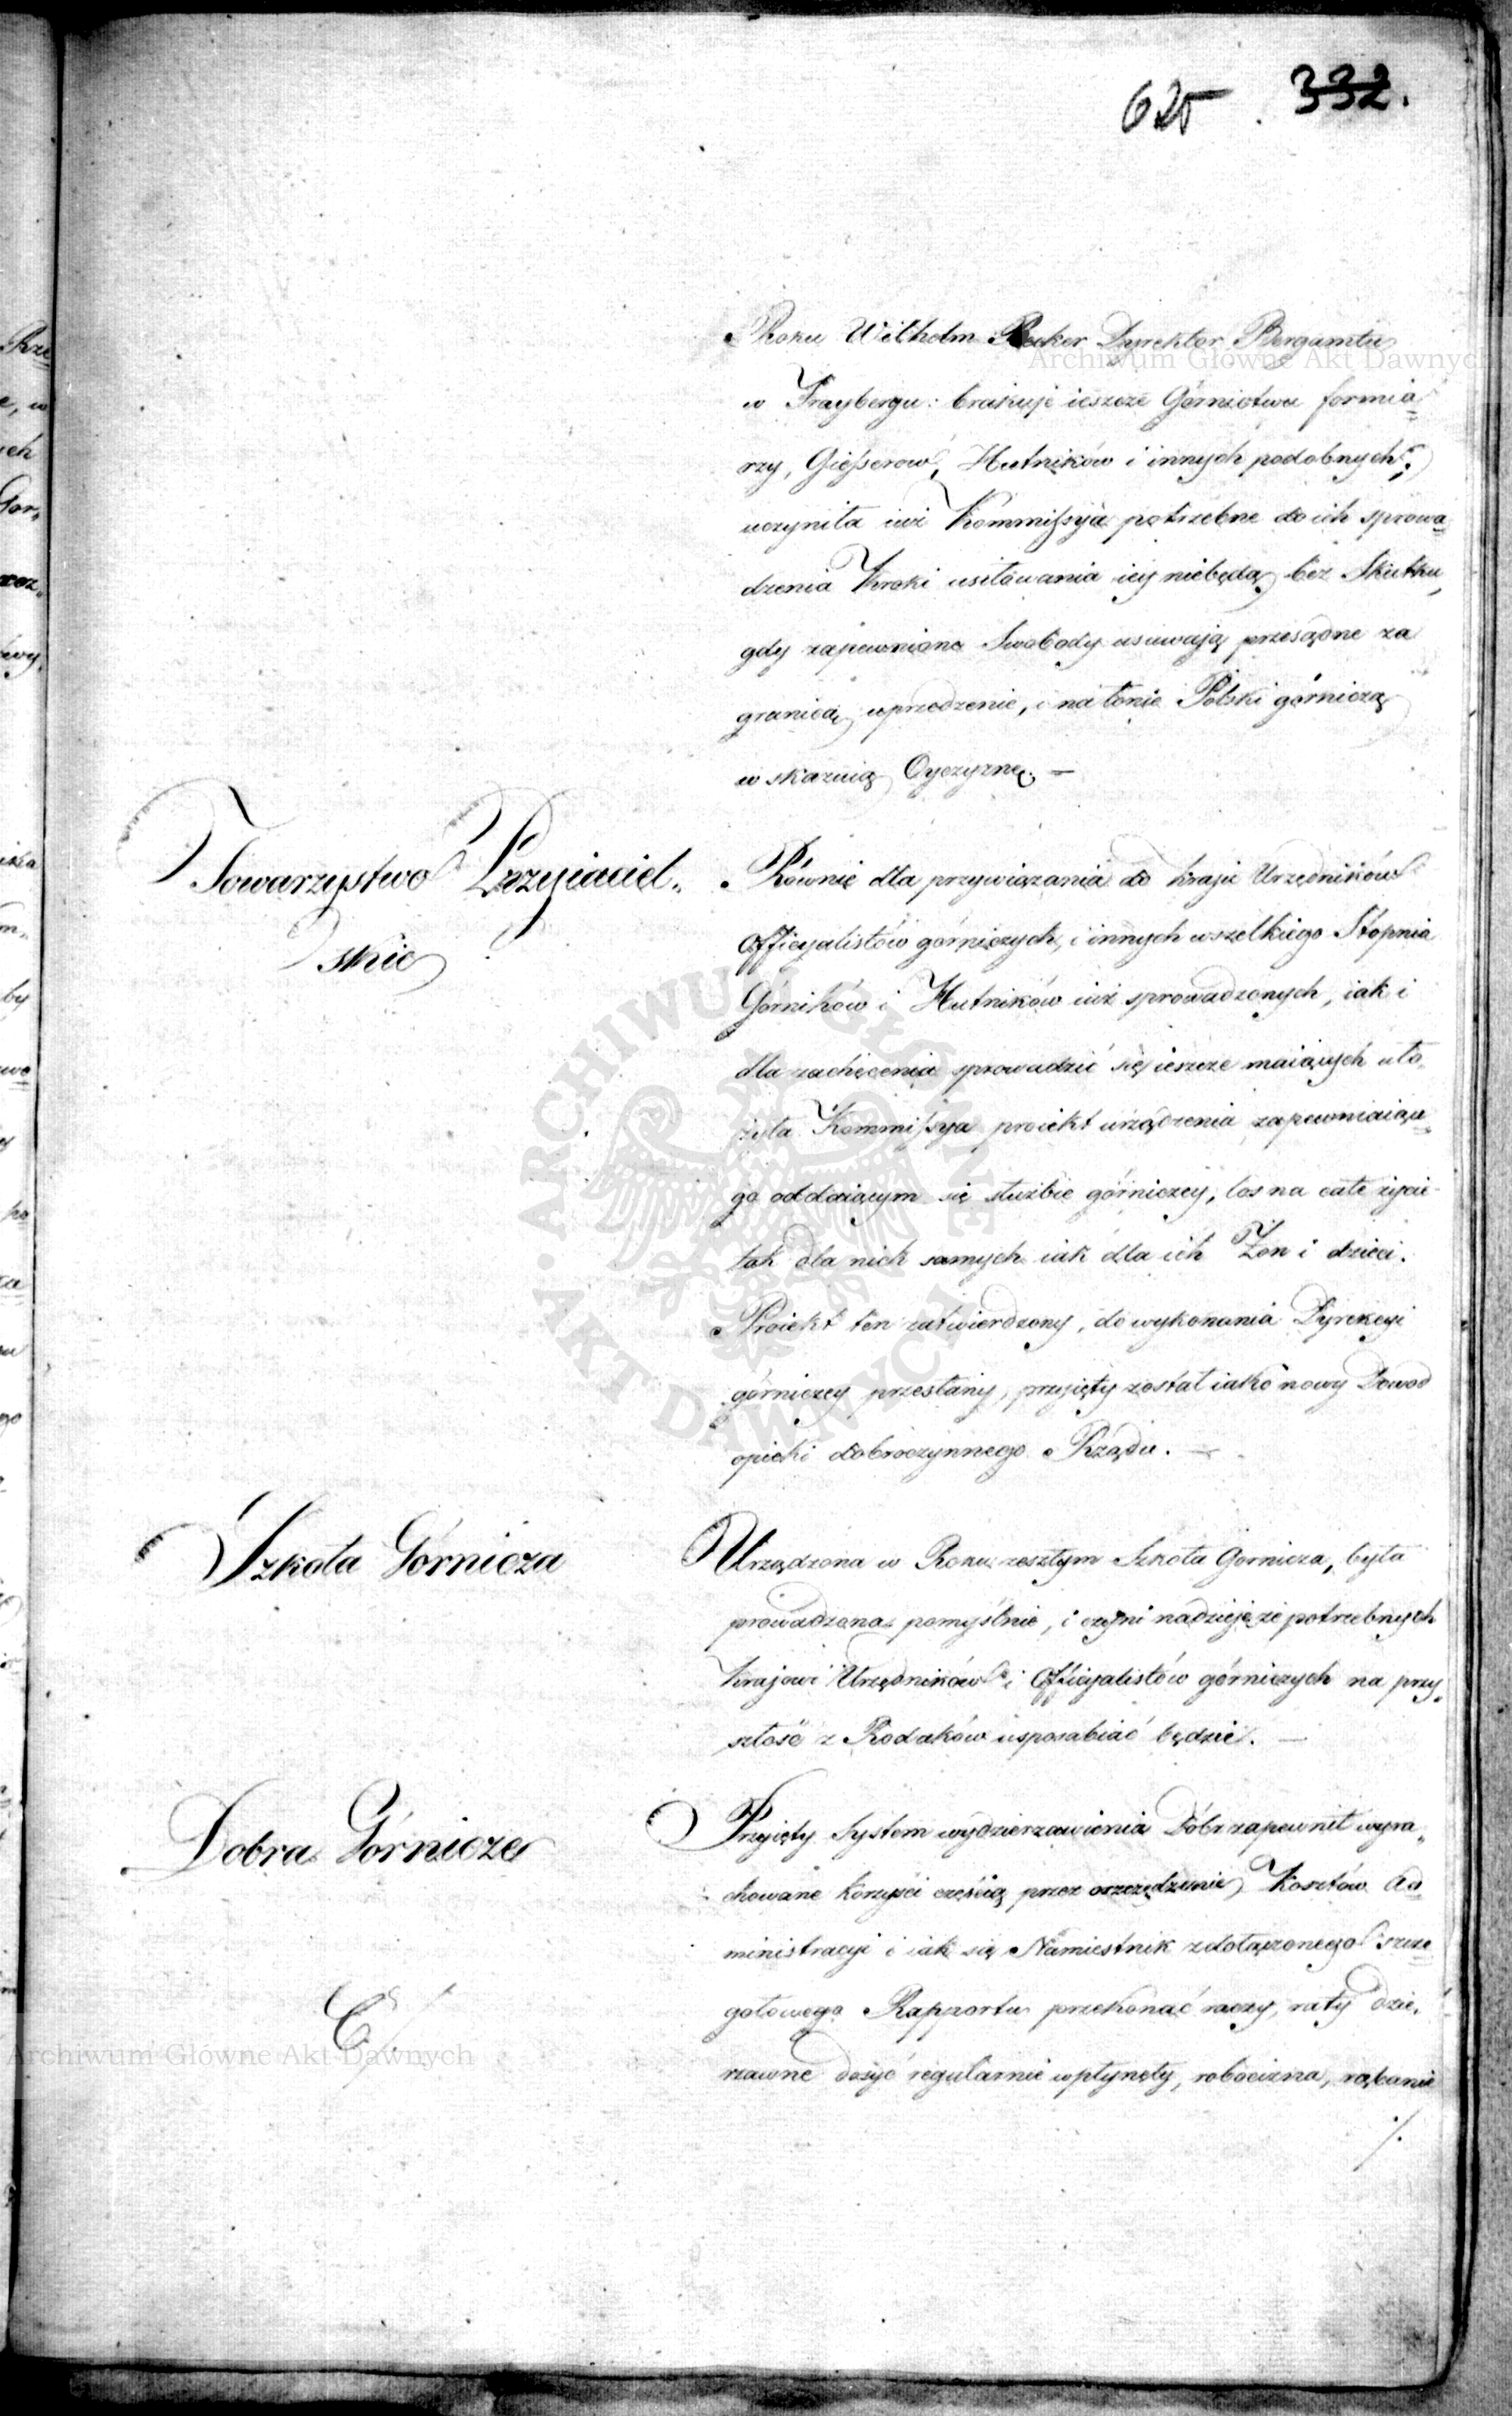 625. 332.
Roku Wilhelm Becker Dyrektor Bergamtu
w Fraybergu: brakuje ieszcze Górnictwu formia=
rzy, Giesserow, Hutników i innych podobnych;
uczyniła iuż Kommissya potrzebne do ich sprowa=
dzenia Kroki usiłowania iey niebędą bez Skutku,
gdy zapewnione Swobody usuwają przesądne za
granicą uprzedzenie, i na łonie Polski górniczą
wskazuią Oyczyznę. —
Towarzystwo Przyiaciel„
skie
Równie dla przywiązania do kraju Urzędników
Officyalistów górniczych, i innych wszelkiego Stopnia
Górników i Hutników iuż sprowadzonych, iak i
dla zachęcenia sprowadzić się ieszcze maiących uło„
żyła Kommissya proiekt urządzenia zapewniaiące=
go oddaiącym się służbie górniczey, los na całe życie
tak dla nich samych iak dla ich Żon i dzieci.
Proiekt ten zatwierdzony, do wykonania Dyrekcyi
górniczey przesłany, przyięty został iako nowy Dowod
opieki dobroczynnego Rządu. —
Szkoła Górnicza
Urządzona w Roku zeszłym Szkoła Gornicza, była
prowadzona pomyślnie, i czyni nadzieję że potrzebnych
krajowi Urzędników i Officyalistów górniczych na przy„
szłość z Rodaków usposabiać będzie. —
Dobra Górnicze
Przyięty System wydzierzawienia Dóbr zapewnił wyra„
chowane korzyści częścią przez oszczędzenie Kosztów Ad=
ministracyi i iak się Namiestnik z dołączonego szcze=
gołowego Rapportu przekonać raczy, raty dzie„
rzawne dosyć regularnie wpłynęły, robocizna, rąbanie
C/.
./.
Archiwum Główne Akt Dawnych
Archiwum Główne Akt Dawnych
ARCHIWUM GŁÓWNE AKT DAWNYCH